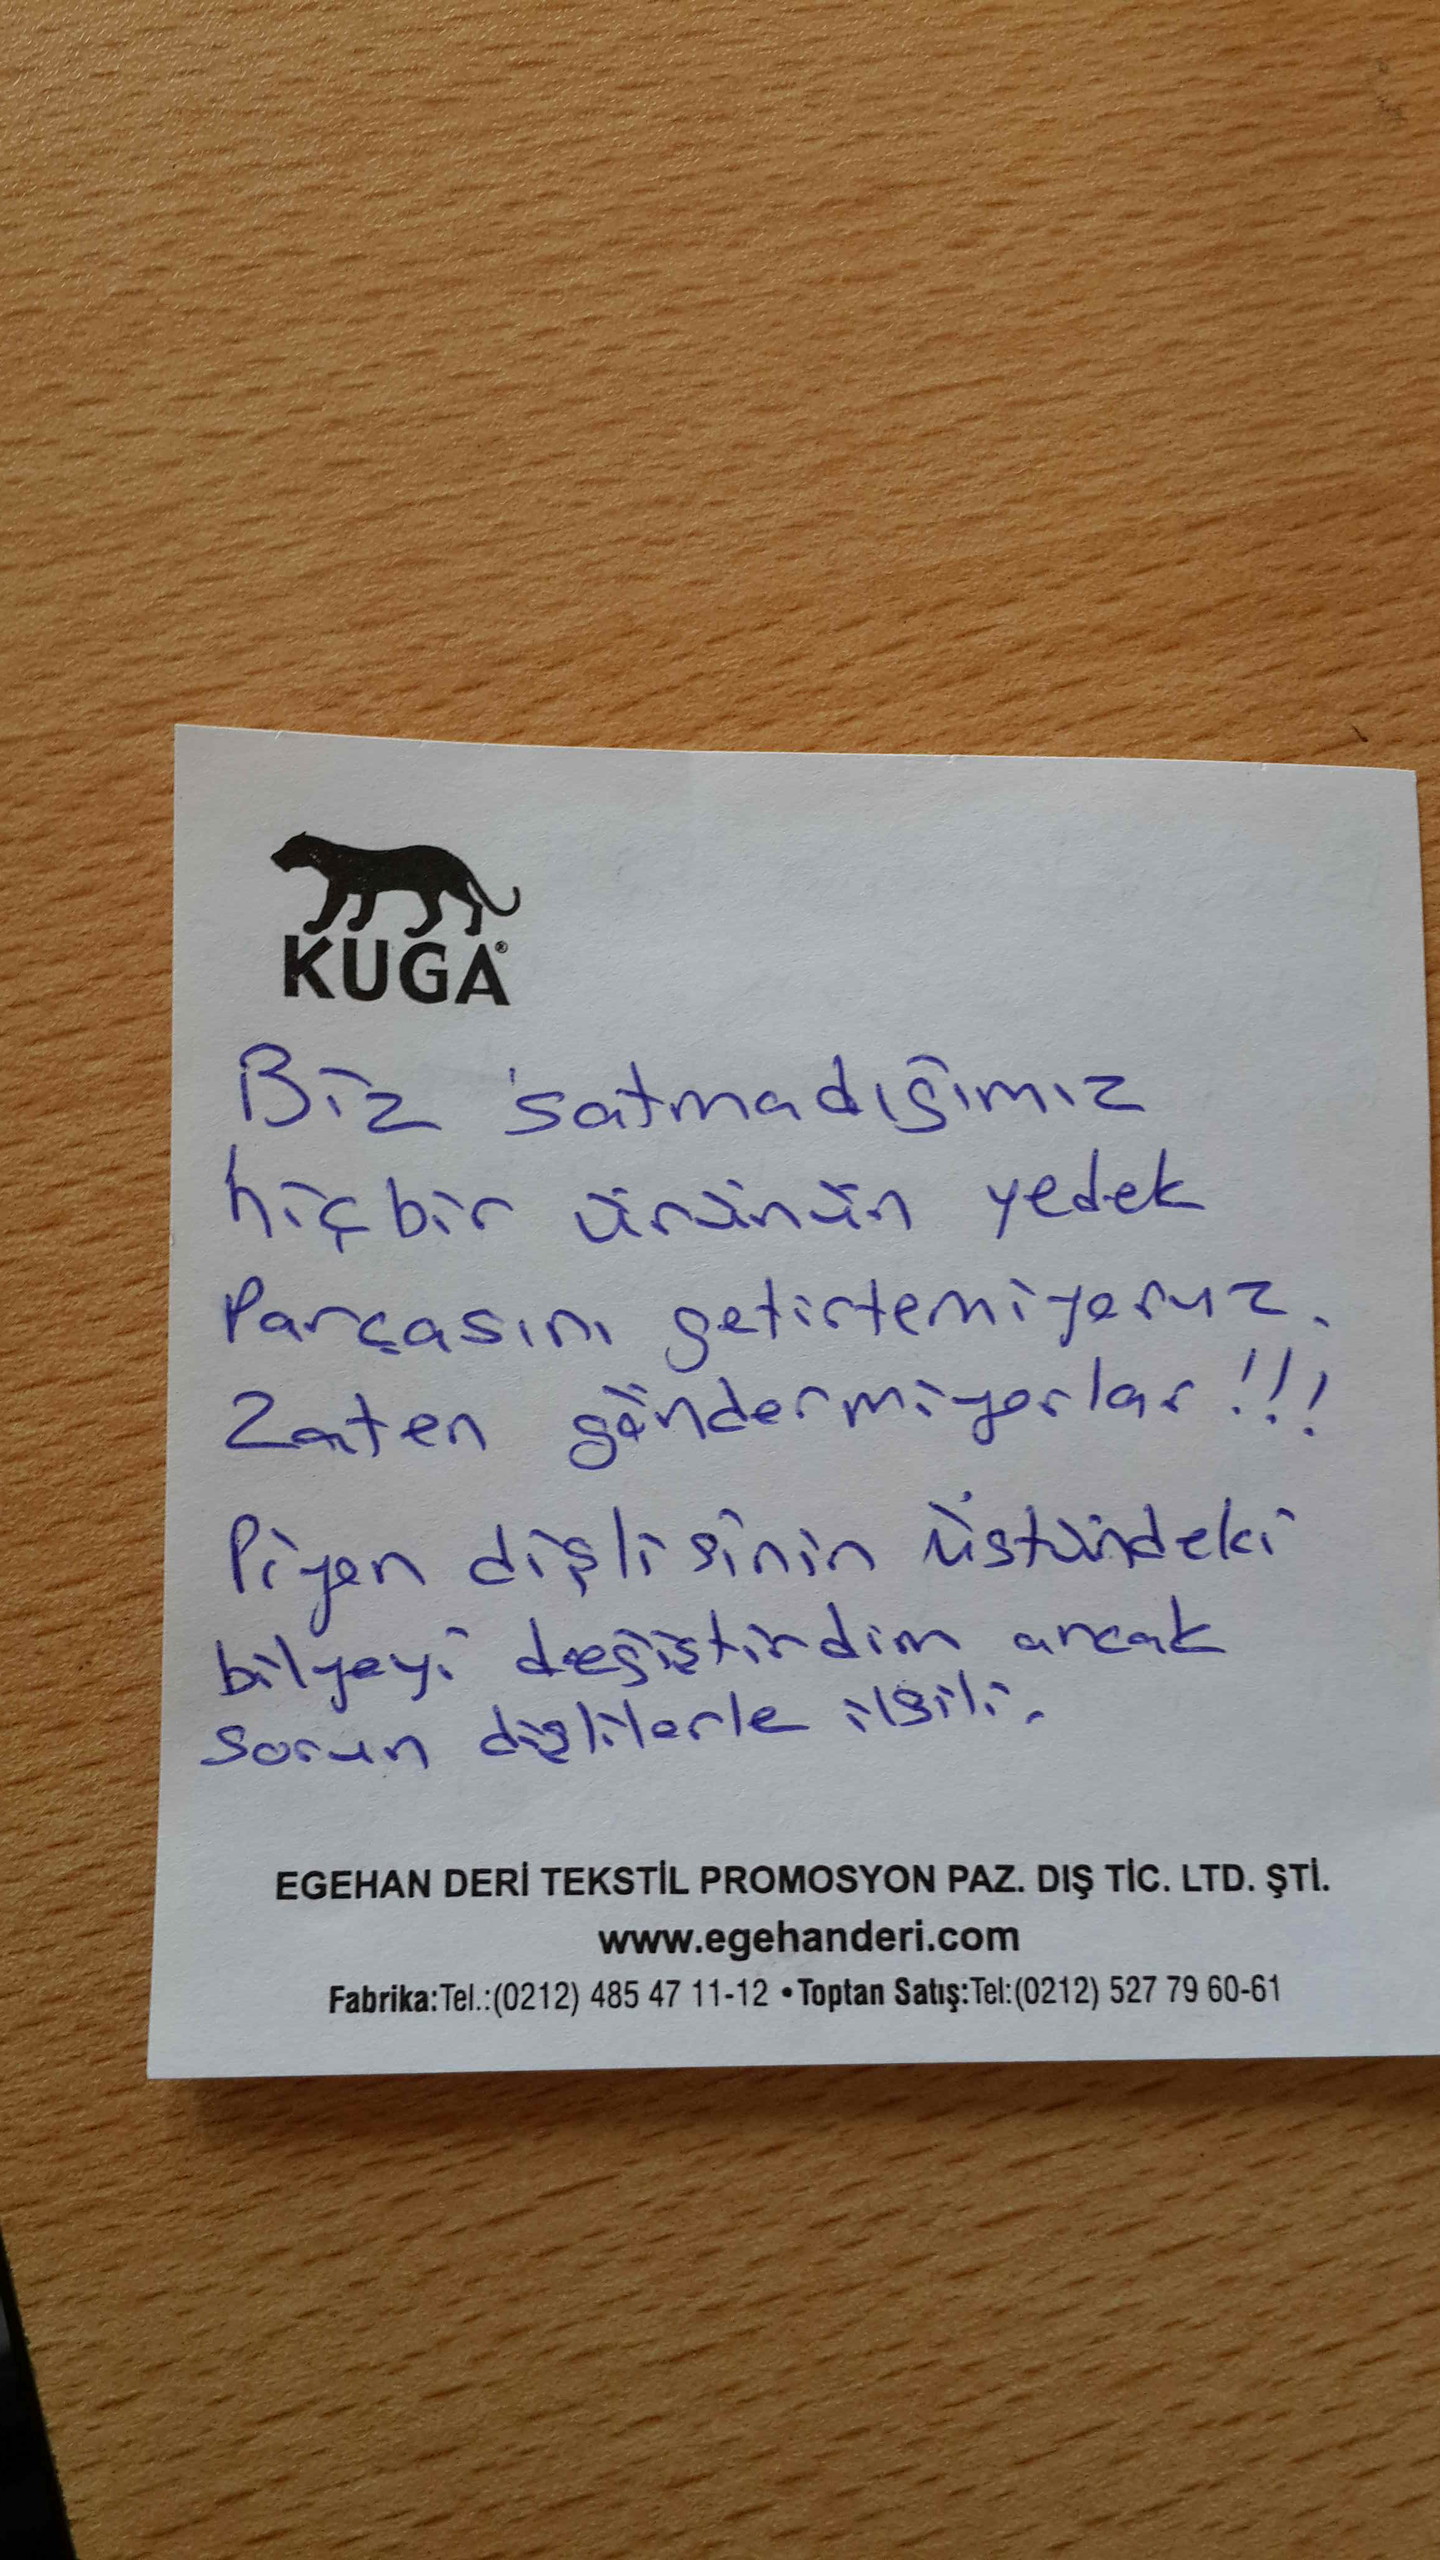 KUGA®
Biz satmadığımız
hiçbir ürünün yedek
Parçasını getirtemiyoruz.
Zaten göndermiyorlar!!!
Piyon dişlisinin üstündeki
bilyeyi değiştirdim ancak
sorun dişlilerle ilgili.
EGEHAN DERİ TEKSTİL PROMOSYON PAZ. DIŞ TİC. LTD. ŞTİ.
www.egehanderi.com
Fabrika:Tel.:(0212) 485 47 11-12 • Toptan Satış:Tel:(0212) 527 79 60-61